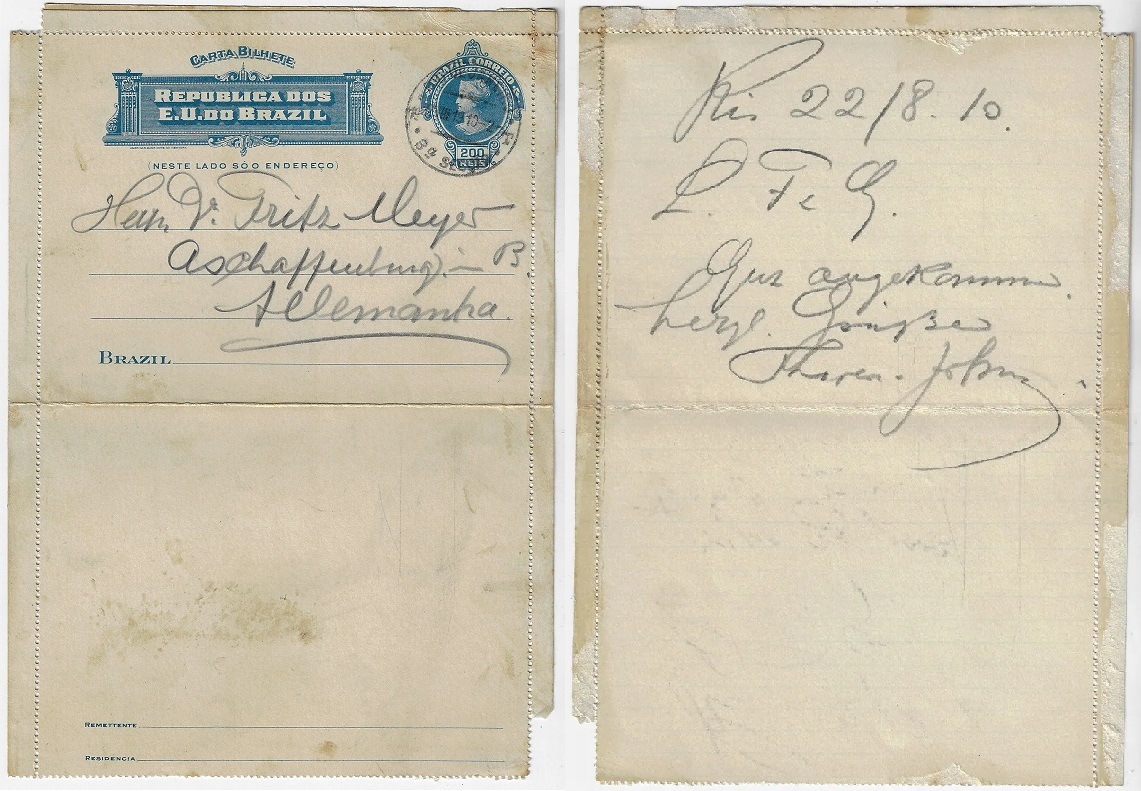 CARTA BILHETE
REPUBLICA DOS
E.U. DO BRAZIL
(NESTE LADO SÓ O ENDEREÇO)
BRAZIL CORREIO
200
REIS
Herrn Dr. Fritz Meyer
Aschaffenburg i B.
Allemanha.
BRAZIL
REMETTENTE
RESIDENCIA
Rio 22/8. 10.
L. F. G.
Gut angekommen.
herzl. Grüße